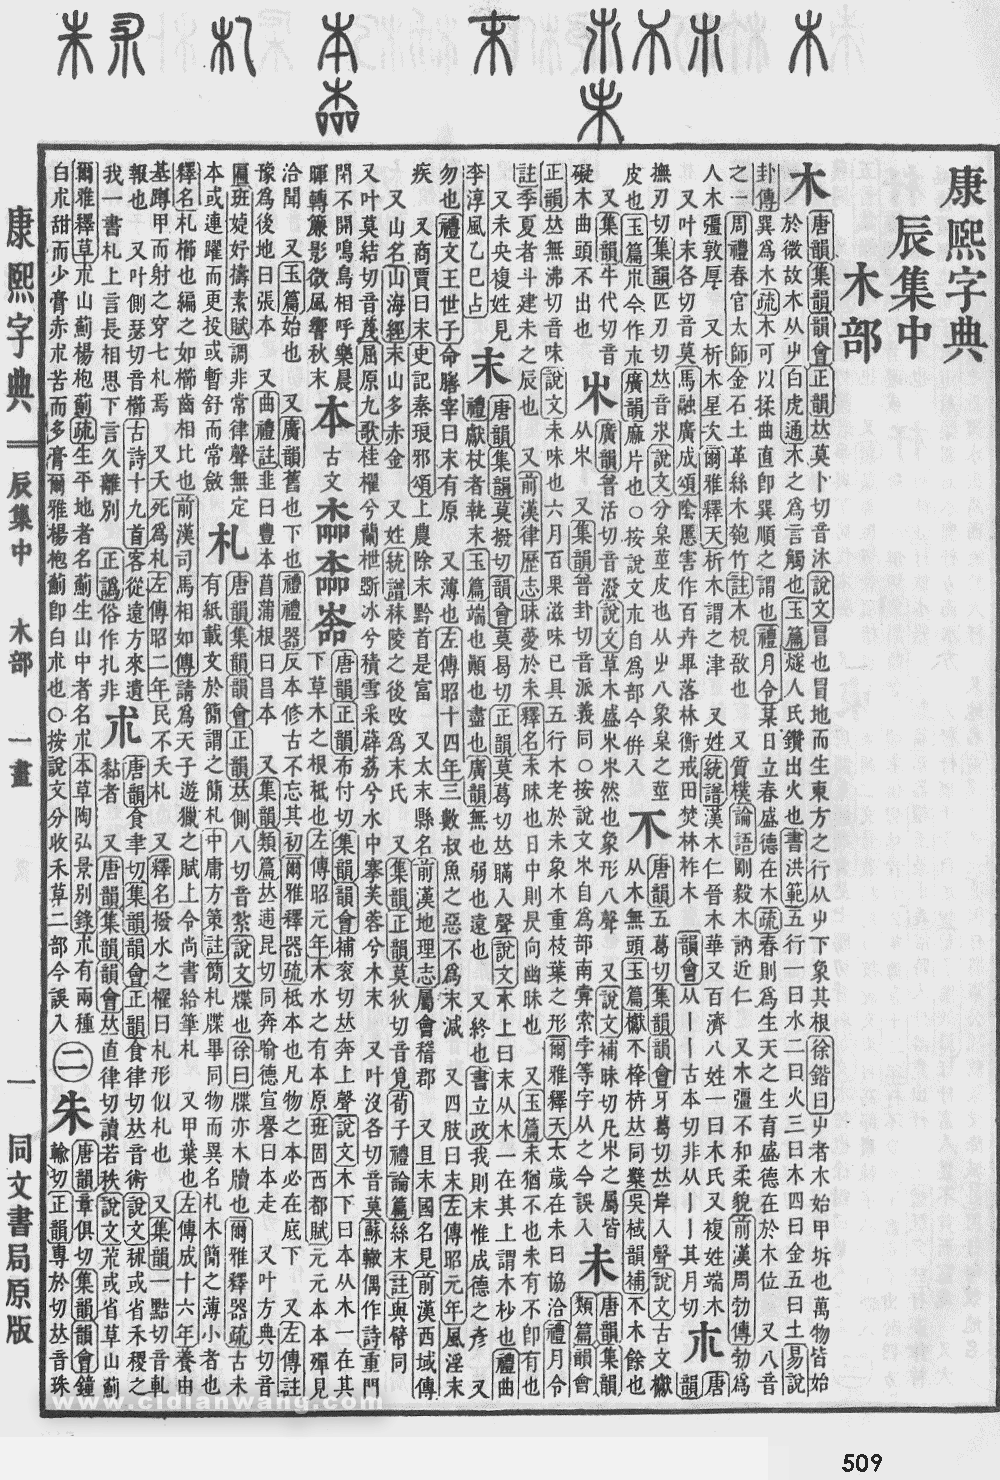 康熙字典
辰集中
木部
木 唐韻集韻韻會正韻𠀤莫卜切音沐說文冒也冒地而生東方之行从屮下象其根徐鍇曰屮者木始甲坼也萬物皆始
於微故木从屮白虎通木之爲言觸也玉篇燧人氏鑽出火也書洪範五行一曰水二曰火三曰木四曰金五曰土易說
卦傳巽爲木疏木可以揉曲直卽巽順之謂也禮月令某日立春盛德在木疏春則爲生天之生育盛德在於木位 又八音
之一周禮春官太師金石土革絲木匏竹註木柷敔也 又質樸論語剛毅木訥近仁 又木彊不和柔貌前漢周勃傳勃爲
人木彊敦厚 又析木星次爾雅釋天析木謂之津 又姓統譜漢木仁晉木華又百濟八姓一曰木氏又複姓端木
又叶末各切音莫馬融廣成頌陰慝害作百卉畢落林衡戒田焚林柞木 韻會从丨丨古本切非从亅亅其月切 𣎳 唐韻
撫刃切集韻匹刃切𠀤音
皮也玉篇
又集韻牛代切音
礙木曲頭不出也 𣎵 廣韻普活切音潑說文草木盛𣎵𣎵然也象形八聲 又說文補昧切凡𣎵之屬皆
从𣎵 又集韻普卦切音派義同○按說文𣎵自爲部南孛索字等字从之今誤入 未 唐韻集韻
正韻𠀤無沸切音味說文未味也六月百果滋味已具五行木老於未象木重枝葉之形爾雅釋天太歲在未曰協洽禮月令
註季夏者斗建未之辰也 又前漢律歷志昧薆於未釋名未昧也日中則昃向幽昧也 又玉篇未猶不也未有不卽有也
又未央複姓見
李淳風乙巳占 末 唐韻集韻莫撥切韻會莫曷切正韻莫葛切𠀤瞞入聲說文木上曰末从木一在其上謂木杪也禮曲
禮獻杖者執末玉篇端也顚也盡也廣韻無也弱也遠也 又終也書立政我則末惟成德之彥 又
勿也禮文王世子命膳宰曰末有原 又薄也左傳昭十四年三數叔魚之惡不爲末減 又四肢曰末左傳昭元年風淫末
疾 又商賈曰末史記秦琅邪頌上農除末黔首是富 又太末縣名前漢地理志屬會稽郡 又且末國名見前漢西域傳
又山名山海經末山多赤金 又姓統譜秣陵之後改爲末氏 又集韻正韻莫狄切音覓荀子禮論篇絲末註與幦同
又叶莫結切音蔑屈原九歌桂櫂兮蘭枻斲冰兮積雪采薜荔兮水中搴芙蓉兮木末 又叶沒各切音莫蘇轍偶作詩重門
閉不開鳴鳥相呼樂晨
暉轉簾影微風響秋末 本 古文 𡴡 唐韻正韻布忖切集韻韻會補衮切𠀤奔上聲說文木下曰本从木一在其
下草木之根柢也左傳昭元年木水之有本原班固西都賦元元本本殫見
洽聞 又玉篇始也 又廣韻舊也下也禮禮器反本修古不忘其初爾雅釋器疏柢本也凡物之本必在底下 又左傳註
豫爲後地曰張本 又曲禮註韭曰豐本菖蒲根曰昌本 又集韻類篇𠀤逋昆切同奔喻德宣譽曰本走 又叶方典切音
匾班婕妤擣素賦調非常律聲無定
本或連躍而更投或暫舒而常斂 札 唐韻集韻韻會正韻𠀤側八切音紮說文牒也徐曰牒亦木牘也爾雅釋器疏古未
有紙載文於簡謂之簡札中庸方策註簡札牒畢同物而異名札木簡之薄小者也
釋名札櫛也編之如櫛齒相比也前漢司馬相如傳請爲天子遊獵之賦上令尚書給筆札 又甲葉也左傳成十六年養由
基蹲甲而射之穿七札焉 又夭死爲札左傳昭二年民不夭札 又釋名撥水之櫂曰札形似札也 又集韻一黠切音軋
報也 又叶側瑟切音櫛古詩十九首客從遠方來遺
我一書札上言長相思下言久離別 正譌俗作扎非 朮 唐韻食聿切集韻韻會正韻食律切𠀤音術說文秫或省禾稷之
黏者 又唐韻集韻韻會𠀤直律切讀若秩說文荒或省草山薊
爾雅釋草朮山薊楊枹薊疏生平地者名薊生山中者名朮本草陶弘景别錄朮有兩種
白朮甜而少膏赤朮苦而多膏爾雅楊枹薊卽白朮也○按說文分收禾草二部今誤入 二 朱 唐韻章俱切集韻韻會鐘
輸切正韻專於切𠀤音珠
康熙字典 辰集中 木部 一畫 一 同文書局原版
www.cidianwang.com
509